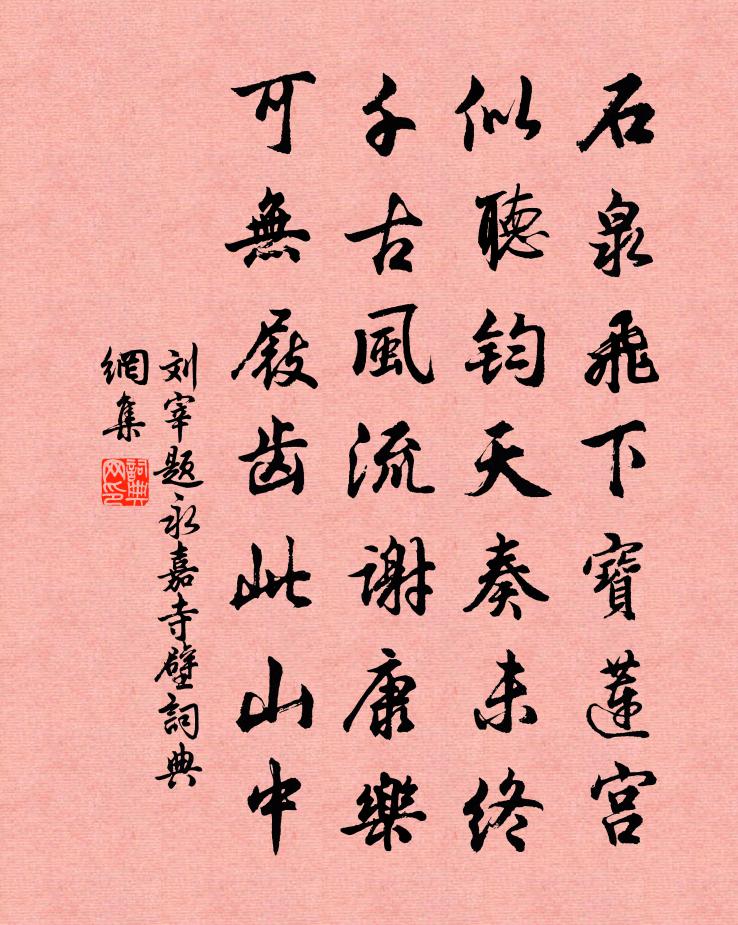 石泉飛下寶蓮宮
似聽鈞天奏未終
千古風流謝康樂
可無屐齒此山中
刘宰题永嘉寺壁詞典
網集
詞典网印